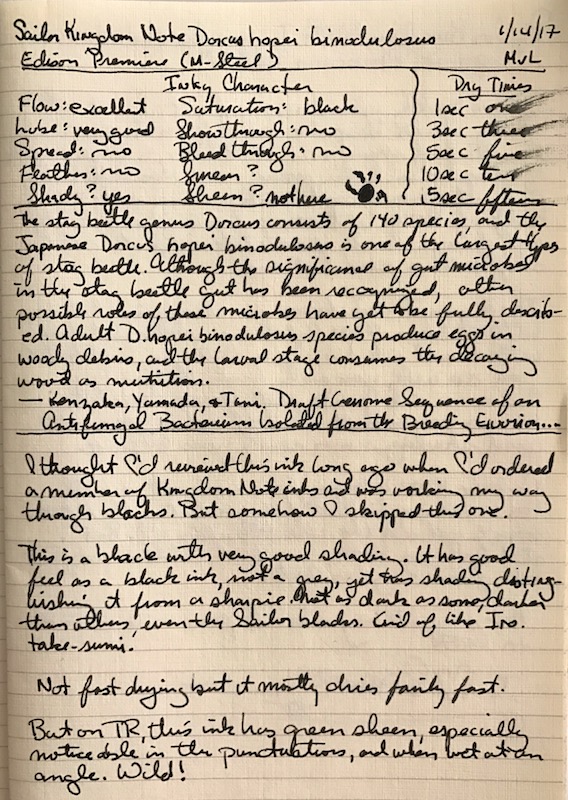 Sailor Kingdom Note Dorcus hopei binodulosus 1/14/17
Edison Premiere (M-Steel) MvL
Inky Character Dry Times
Flow: excellent Saturation: black 1sec one
Lube: very good Show through: no 3sec three
Spread: no Bleed through: no 5sec five
Feather: no Smear? 10sec ten
Shady? yes Sheen? not here 15sec fifteen
The stag beetle genus Dorcus consists of 140 species, and the
Japanese Dorcus hopei binodulosus is one of the largest types
of stag beetle. Although the significance of gut microbes
in the stag beetle gut has been recognized, other
possible roles of these microbes have yet to be fully describ-
ed. Adult D. hopei binodulosus species produce eggs in
woody debris, and the larval stage consumes the decaying
wood as nutrition.
— Kenzaka, Yamada, & Tani. Draft Genome Sequence of an
Antifungal Bacterium Isolated from the Breeding Environ...
I thought I'd reviewed this ink long ago when I'd ordered
a number of Kingdom Note inks and was working my way
through blacks. But somehow I skipped this one.
This is a black with very good shading. It has good
feel as a black ink, not a grey, yet has shading disting-
uishing it from a sharpie. Not as dark as some, darker
than others, even the Sailor blacks. Kind of like Iro.
take-sumi.
Not fast drying but it mostly dries fairly fast.
But on TR, this ink has green sheen, especially
noticeable in the punctuations, and when wet at an
angle. Wild!